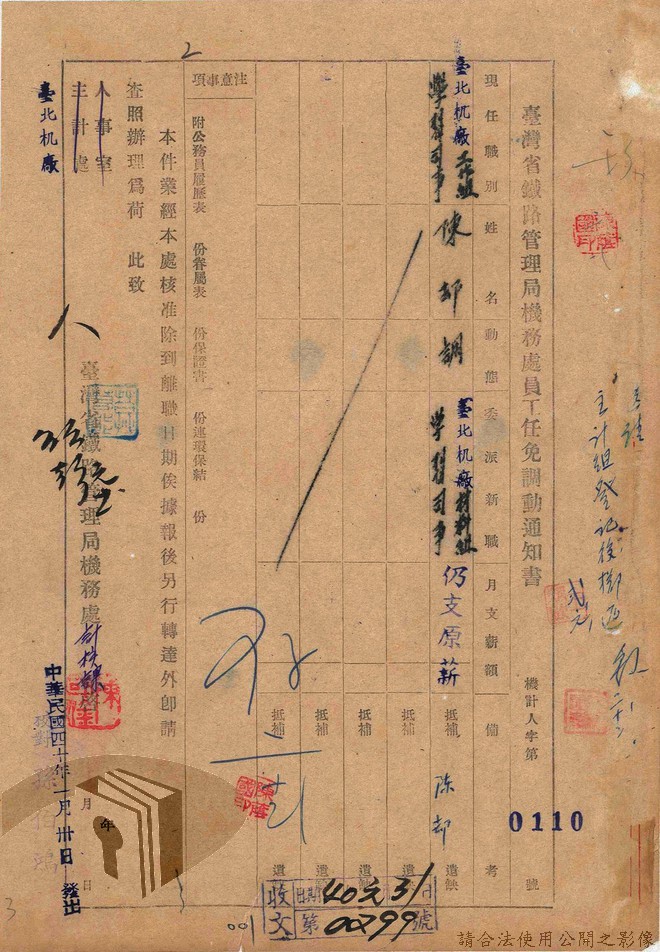 臺灣省鐵路管理局機務處員工任免調動通知書
機計人字第
0110
號
現任職別
姓名
動態
委派新職
月支薪額
備考
臺北机廠工作組
學習司事
陳却
調
臺北机廠材料組
學習司事
仍支原薪
抵補 陳却 遺缺
抵補
抵補
抵補
抵補
注意事項
附公務員履歷表 份眷屬表 份保證書 份連環保結 份
本件業經本處核准除到離職日期俟據報後另行轉達外卽請
查照辦理爲荷 此致
人事室
主計處
臺北机廠
臺灣省鐵路管理局機務處
中華民國四十年一月卅日 發出
年月日
主計組登記後擲還
收文
日期
40元31
第
00799
號
001
2
3
請合法使用公開之影像